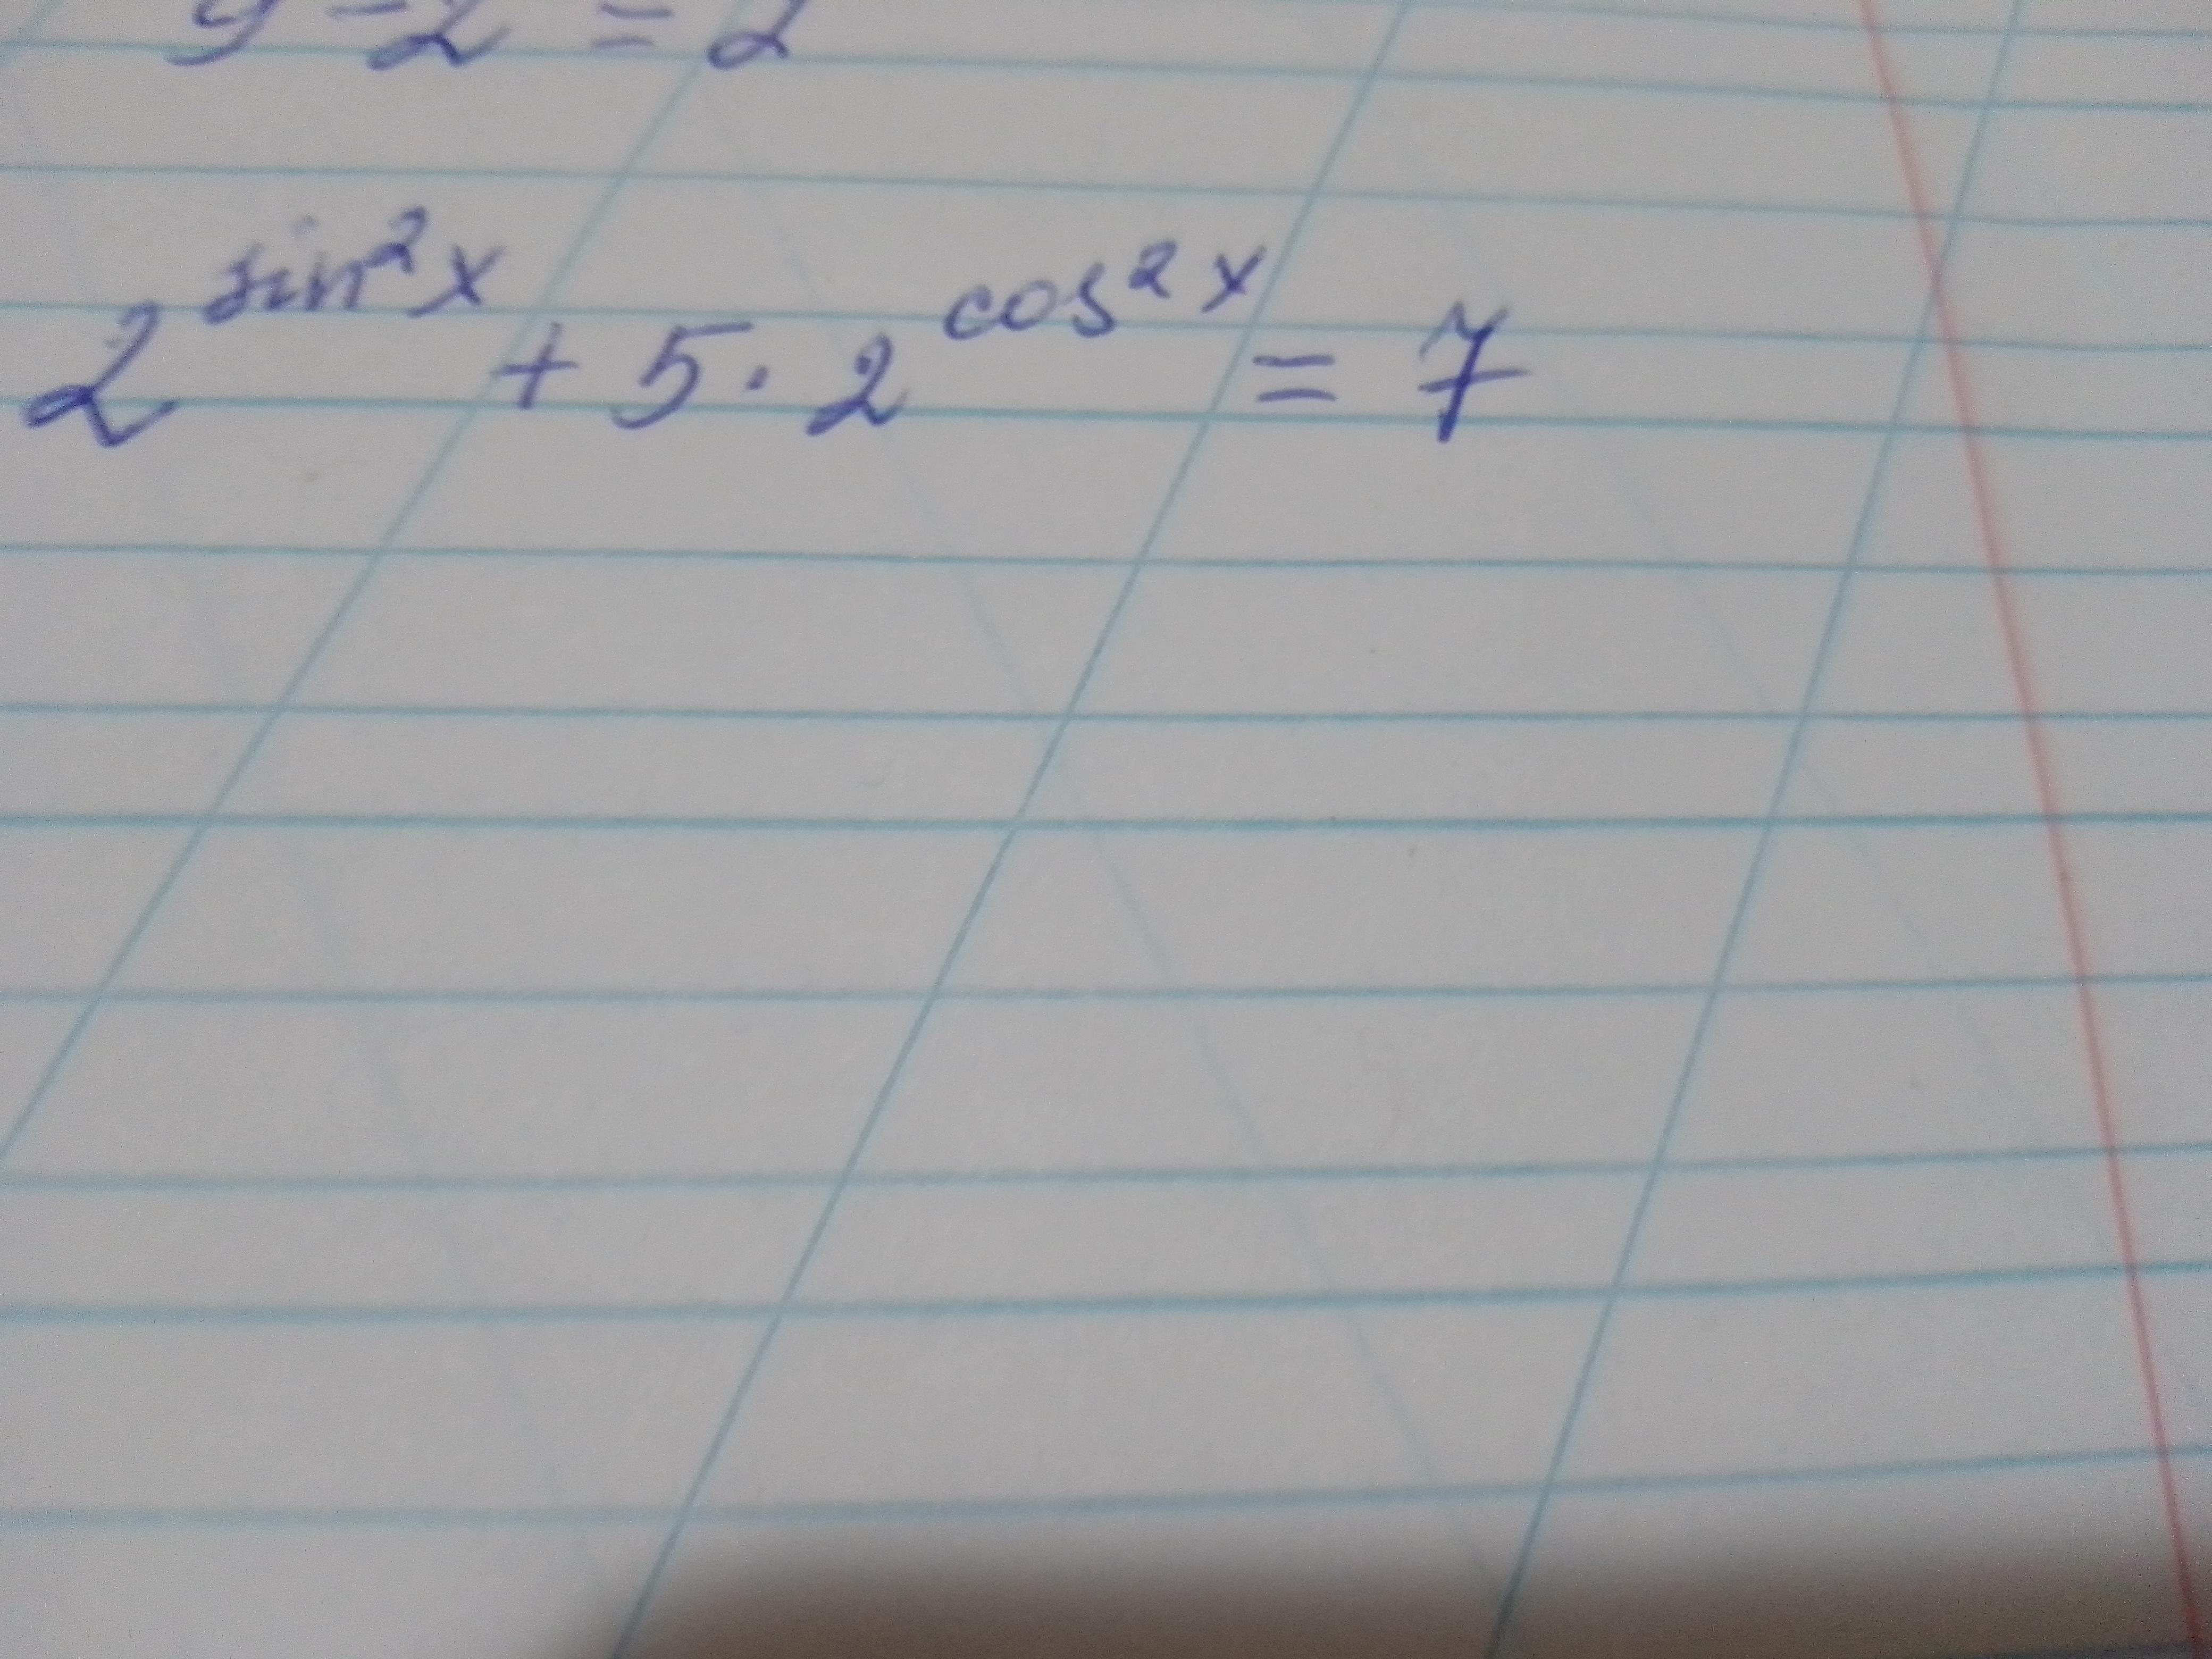 y - 2 = 2
2^{sin^2 x} + 5 · 2^{cos^2 x} = 7